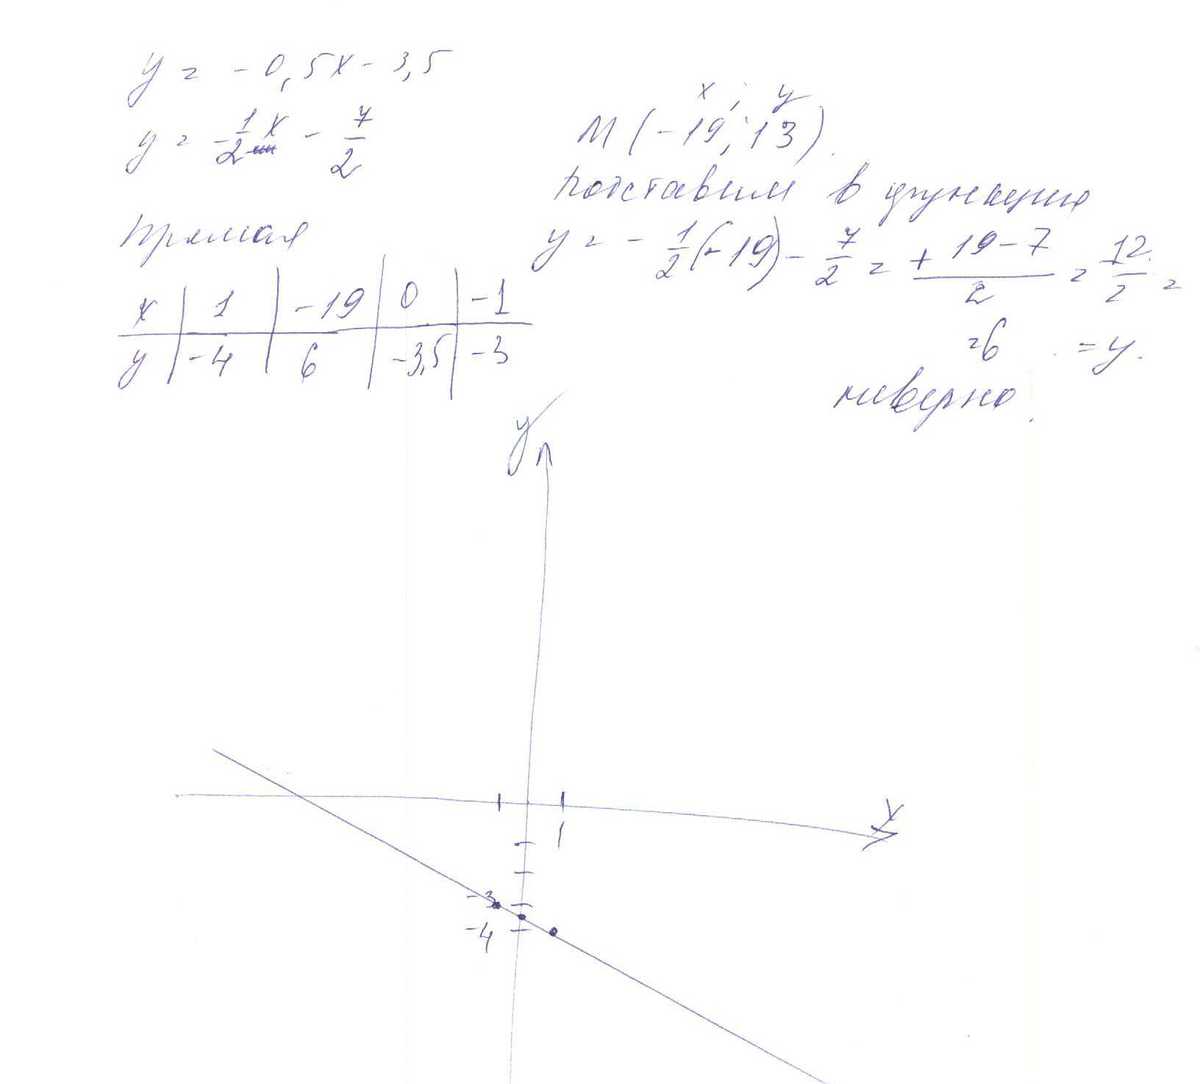 y = -0,5x - 3,5
y = -1/2 x - 7/2
прямая
x | 1 | -19 | 0 | -1
y | -4 | 6 | -3,5 | -3
x ; y
M (-19; 13).
подставим в функцию
y = - 1/2 (-19) - 7/2 = + 19 - 7 / 2 = 12/2 =
= 6 = y.
неверно.
y
x
1
-3
-4